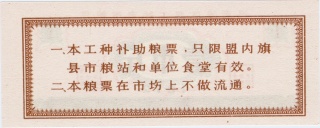 一.本工种补助粮票，只限盟内旗
县市粮站和单位食堂有效。
二.本粮票在市场上不做流通。